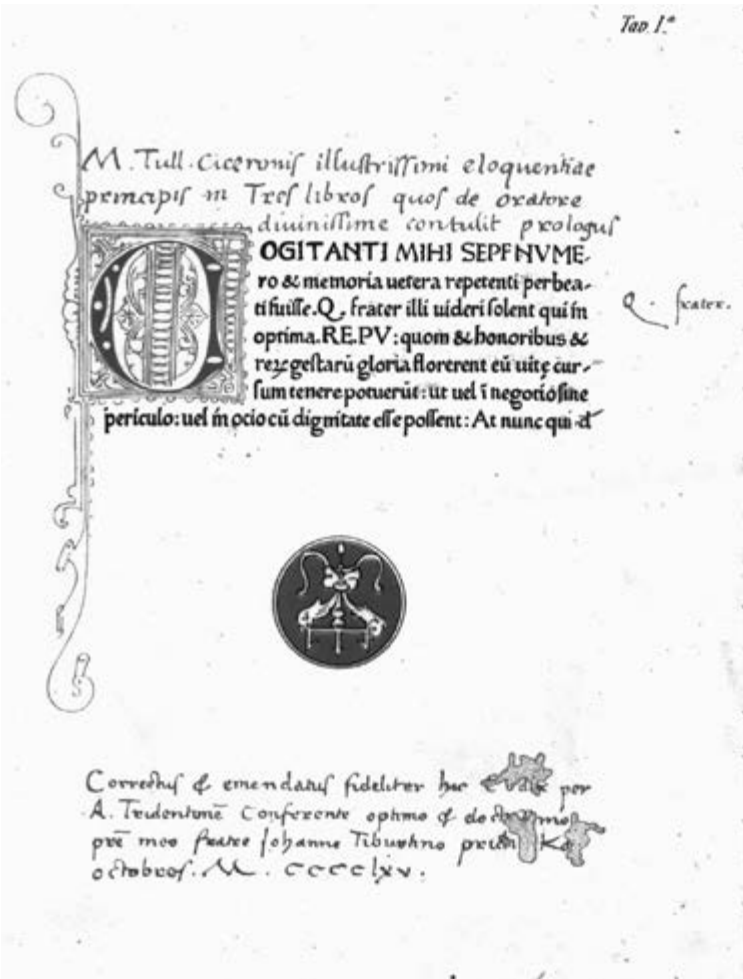 Tav. I.ª
M. Tull. Ciceronis illustrissimi eloquentiae
principis in Tres libros quos de oratore
diuinissime contulit prologus
COGITANTI MIHI SEPE NVME-
ro & memoria uetera repetenti perbea-
ti fuisse. Q. frater illi uideri solent qui in
optima. RE. PV: quom & honoribus &
reꝝ gestarū gloria florerent eū uitę cur-
sum tenere potuerūt: ut uel ī negotio sine
periculo: uel in ocio cū dignitate esse possent: At nunc qui
Q. frater.
Correctus & emendatus fideliter hic per
A. Tridentonē Conferente optimo & doctissimo
prē meo fratre Johanne Tiburtino pridie
octobres. M. CCCC lxv.